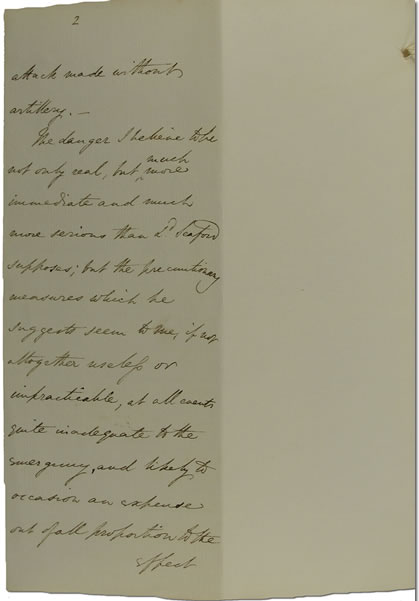 2
attack made without
artillery. —
The danger I believe to be
not only real, but much more
immediate and much
more serious than Ld Seaford
supposes; but the precautionary
measures which he
suggests seem to me, if not
altogether useless or
impracticable, at all events
quite inadequate to the
emergency, and likely to
occasion an expense
out of all proportion to the
effect